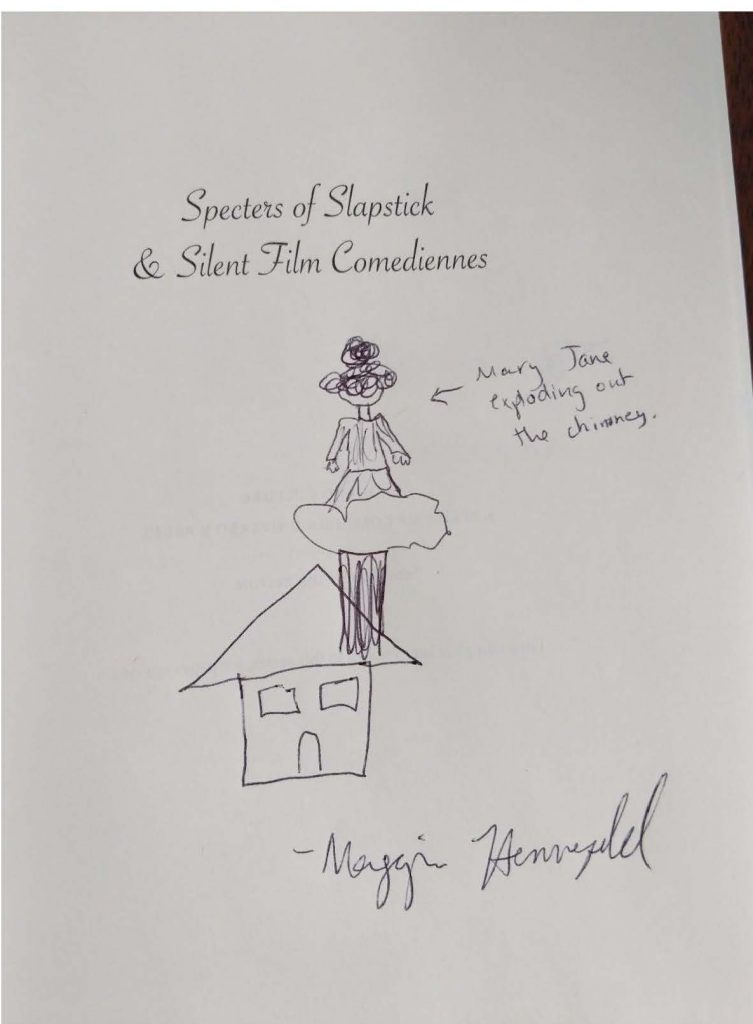 Specters of Slapstick
& Silent Film Comediennes
← Mary Jane
exploding out
the chimney.
- Maggie Hennefeld